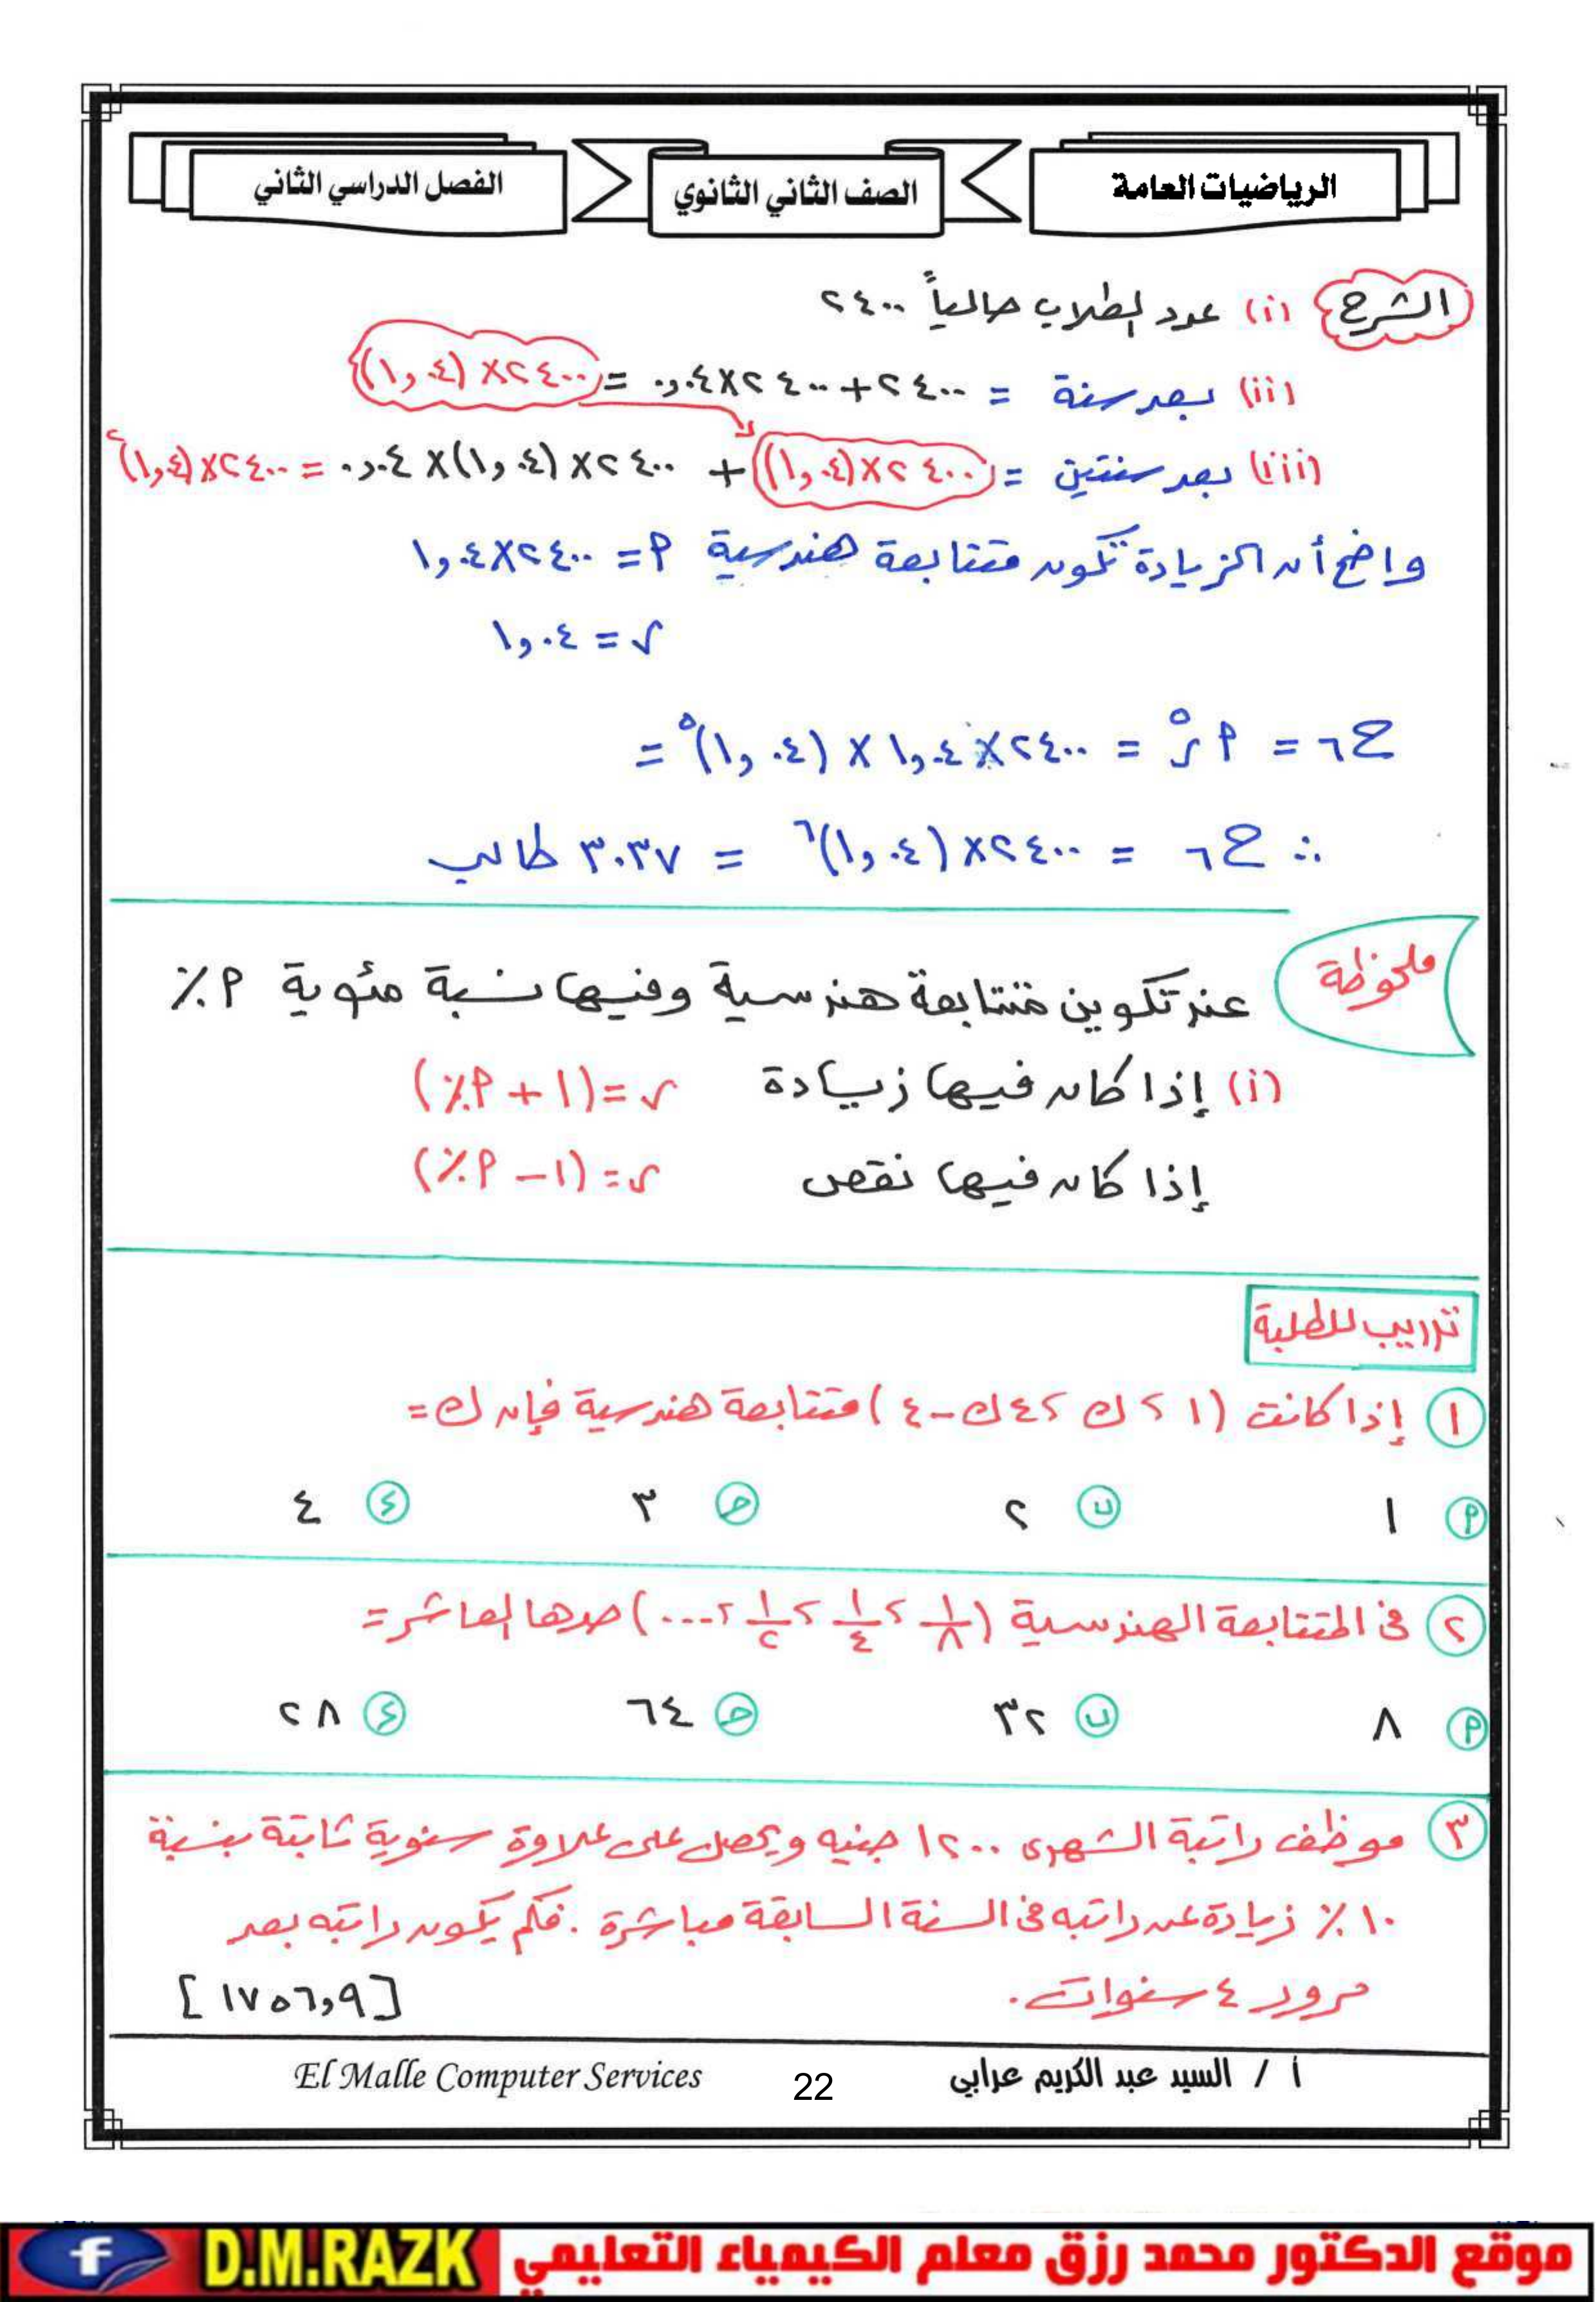 الرياضيات العامة
الصف الثاني الثانوي
الفصل الدراسي الثاني
الشرح (i) عدد الطلاب حالياً ٢٤٠٠
(ii) بعد سنة = ٢٤٠٠ + ٢٤٠٠ × ٠,٠٤ = ٢٤٠٠ × (١,٠٤)
(iii) بعد سنتين = ٢٤٠٠ × (١,٠٤) + ٢٤٠٠ × (١,٠٤) × ٠,٠٤ = ٢٤٠٠ × (١,٠٤)²
واضح أن الزيادة تكون متتابعة هندسية P = ٢٤٠٠ × ١,٠٤
ر = ١,٠٤
ح٦ = P ر⁵ = ٢٤٠٠ × ١,٠٤ × (١,٠٤)⁵ =
∴ ح٦ = ٢٤٠٠ × (١,٠٤)⁶ = ٣٠٣٧ طالب
ملحوظة
عند تكوين متتابعة هندسية وفيها نسبة مئوية P٪
(i) إذا كان فيها زيادة ر = (١ + P٪)
إذا كان فيها نقص ر = (١ - P٪)
تدريب للطلبة
١ إذا كانت (١ ، ك ، ٤ك - ٤) متتابعة هندسية فإن ك =
P ١ ب ٢ ج ٣ د ٤
٢ في المتتابعة الهندسية (١/٨ ، ١/٤ ، ١/٢ ، ...) حدها العاشر =
P ٨ ب ٣٢ ج ٦٤ د ٢٨
٣ موظف راتبة الشهرى ١٢٠٠ جنيه ويحصل على علاوة سنوية ثابتة بنسبة
١٠٪ زيادة عن راتبه في السنة السابقة مباشرة . فكم يكون راتبه بعد
مرور ٤ سنوات .
[١٧٥٦,٩]
أ / السيد عبد الكريم عرابي
22
El Malle Computer Services
موقع الدكتور محمد رزق معلم الكيمياء التعليمي D.M.RAZK f